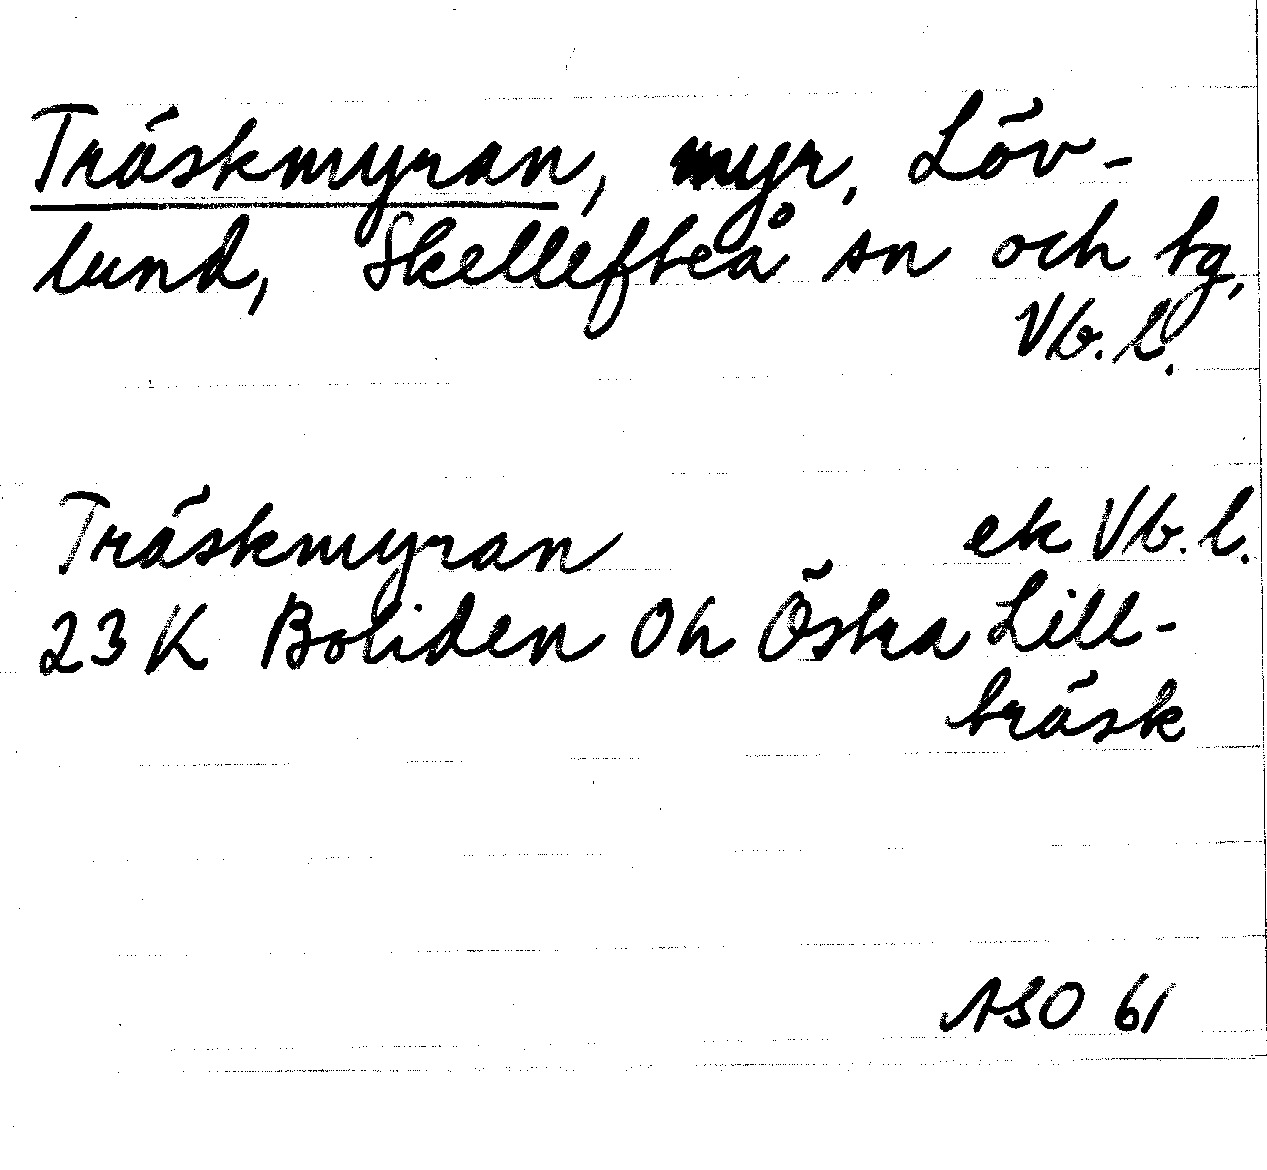 Träskmyran, myr, Löv-
lund, Skellefteå sn och tg,
Vb. l.
Träskmyran ek Vb. l.
23 K Boliden Oh Östra Lill-
träsk
ASO 61